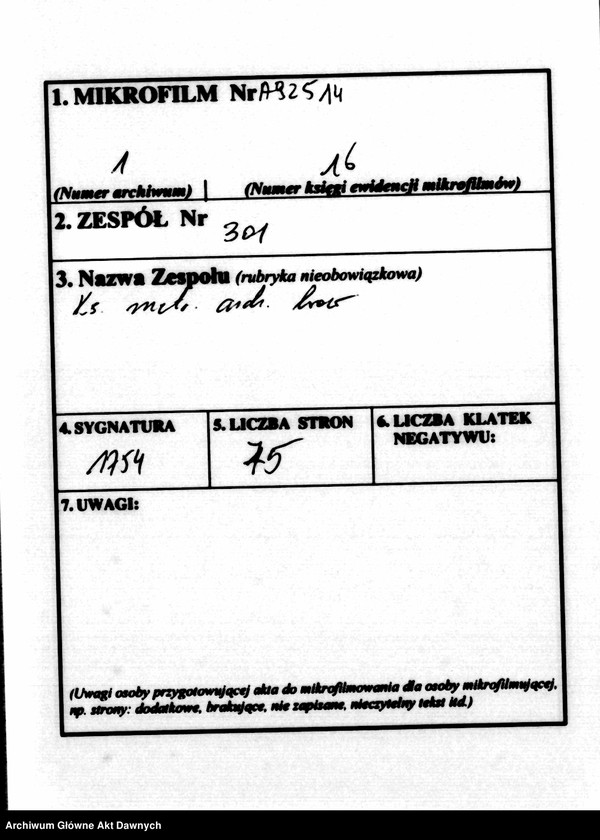 1. MIKROFILM Nr A92514
1 16
(Numer archiwum) | (Numer księgi ewidencji mikrofilmów)
2. ZESPÓŁ Nr 301
3. Nazwa Zespołu (rubryka nieobowiązkowa)
Ks. metr. arch.
4. SYGNATURA
1754
5. LICZBA STRON
75
6. LICZBA KLATEK
NEGATYWU:
7. UWAGI:
(Uwagi osoby przygotowującej akta do mikrofilmowania dla osoby mikrofilmującej,
np. strony: dodatkowe, brakujące, nie zapisane, nieczytelny tekst itd.)
Archiwum Główne Akt Dawnych